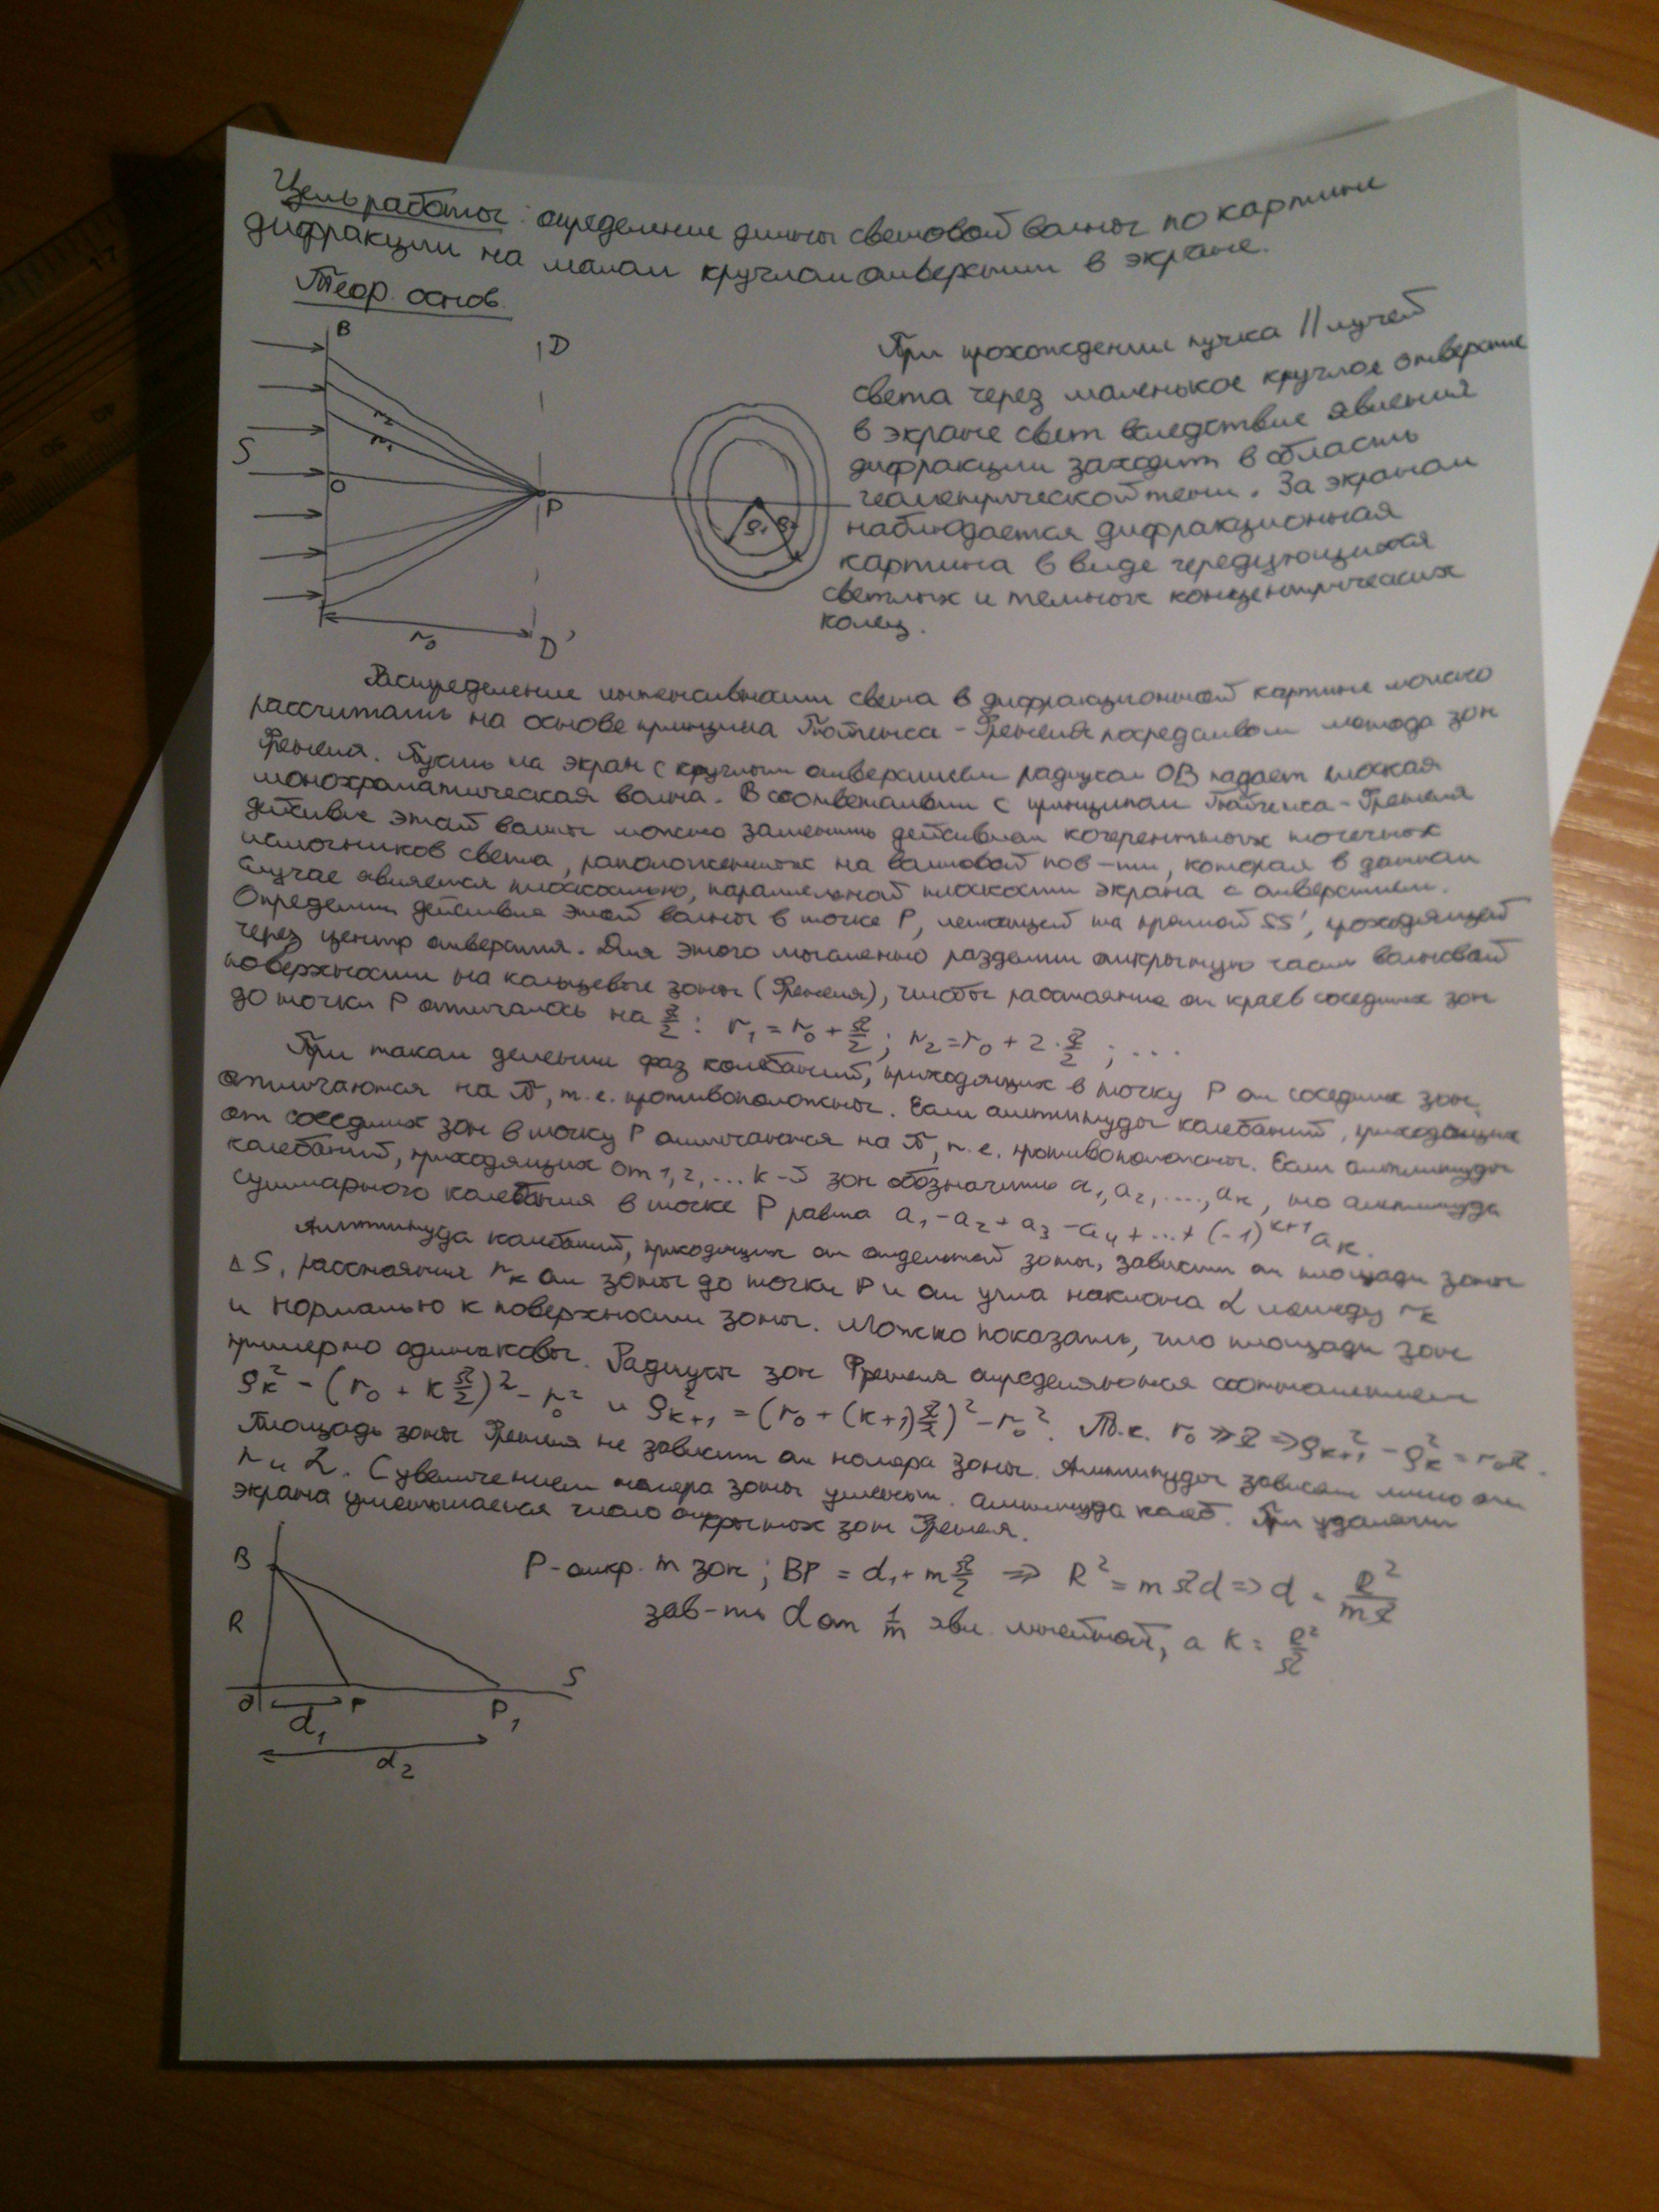 Цель работы: определение длины световой волны по картине
дифракции на малом круглом отверстии в экране.
Теор. основ.
B
D
r₂
r₁
S
O
P
ρ₁ ρ₂
r₀
D'
При прохождении пучка // лучей
света через маленькое круглое отверстие
в экране свет вследствие явления
дифракции заходит в область
геометрической тени. За экраном
наблюдается дифракционная
картина в виде чередующихся
светлых и темных концентрических
колец.
Распределение интенсивности света в дифракционной картине можно
рассчитать на основе принципа Гюйгенса - Френеля посредством метода зон
Френеля. Пусть на экран с круглым отверстием радиусом OB падает плоская
монохроматическая волна. В соответствии с принципом Гюйгенса - Френеля
действие этой волны можно заменить действием когерентных точечных
источников света, расположенных на волновой пов-ти, которая в данном
случае является плоскостью, параллельной плоскости экрана с отверстием.
Определим действие этой волны в точке P, лежащей на прямой SS', проходящей
через центр отверстия. Для этого мысленно разделим открытую часть волновой
поверхности на кольцевые зоны (Френеля), чтобы расстояние от краев соседних зон
до точки P отличалось на λ/2 : r₁ = r₀ + λ/2 ; r₂ = r₀ + 2·λ/2 ; ...
При таком делении фаз колебаний, приходящих в точку P от соседних зон,
отличаются на π, т.е. противоположны. Если амплитуды колебаний, приходящих
от соседних зон в точку P отличаются на π, т.е. противоположны. Если амплитуды
колебаний, приходящих от 1, 2, ... k-й зон обозначить a₁, a₂, ...., aₖ, то амплитуда
суммарного колебания в точке P равна a₁ - a₂ + a₃ - a₄ + ... + (-1)ᵏ⁺¹ aₖ.
Амплитуда колебаний, приходящих от отдельной зоны, зависит от площади зоны
ΔS, расстояния rₖ от зоны до точки P и от угла наклона α между rₖ
и нормалью к поверхности зоны. Можно показать, что площади зон
примерно одинаковы. Радиусы зон Френеля определяются соотношением
ρₖ² = (r₀ + k λ/2)² - r₀² и ρₖ₊₁² = (r₀ + (k+1) λ/2)² - r₀². Т.к. r₀ ≫ λ ⇒ ρₖ₊₁² - ρₖ² = r₀λ.
Площадь зоны Френеля не зависит от номера зоны. Амплитуды зависят лишь от
r и α. С увеличением номера зоны уменьш. амплитуда колеб. При удалении
экрана уменьшается число открытых зон Френеля.
B
R
O
P
P₁
S
d₁
d₂
P - откр. m зон ; BP = d₁ + m λ/2 ⇒ R² = m λ d ⇒ d = R²/mλ
зав-ть d от 1/m явл. линейной, а K = R²/λ